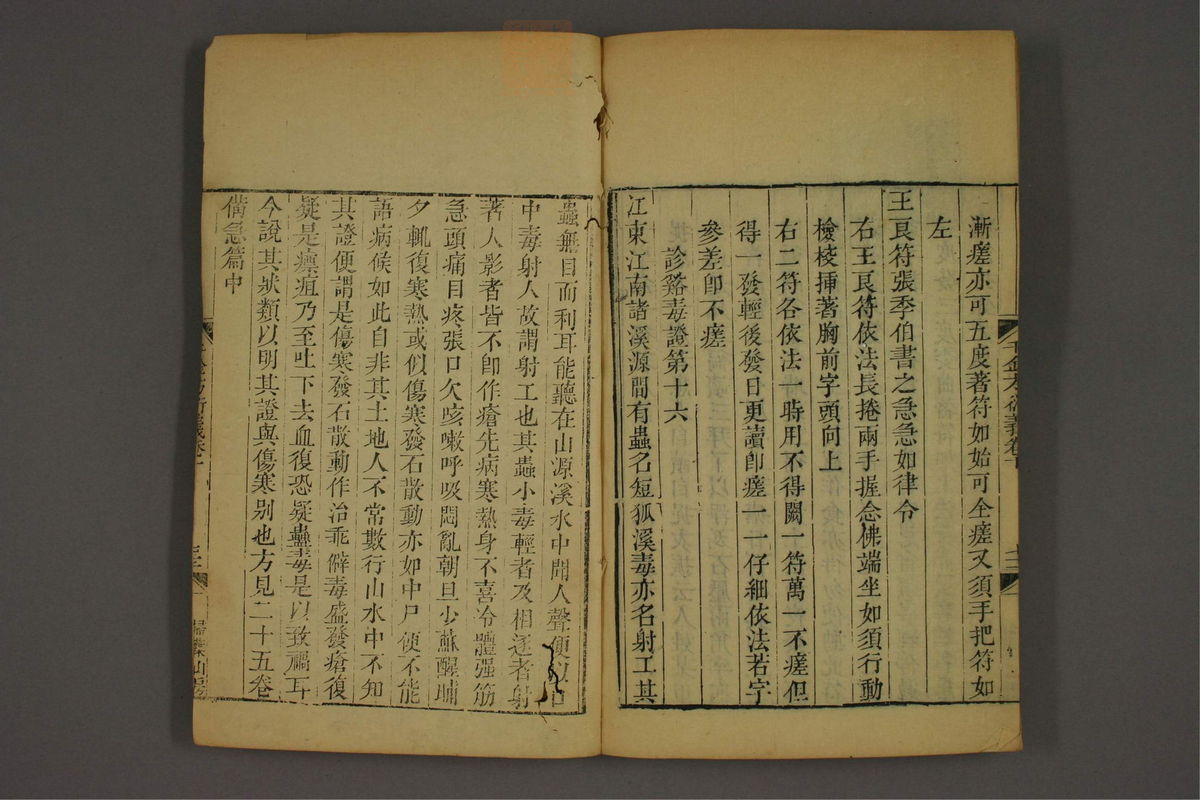 漸瘥亦可五度著符如始可全瘥又須手把符如
左
王良符張季伯書之急急如律令
右王良符依法長捲兩手握念佛端坐如須行動
檢校插著胸前字頭向上
右二符各依法一時用不得闕一符萬一不瘥但
得一發輕後發日更讀卽瘥一一仔細依法若字
參差卽不瘥
診谿毒證第十六
江東江南諸溪源間有蟲名短狐溪毒亦名射工其
蟲無目而利耳能聽在山源溪水中聞人聲便以口
中毒射人故謂射工也其蟲小毒輕者及相逐者射
著人影者皆不卽作瘡先病寒熱身不喜冷體强筋
急頭痛目疼張口欠咳嗽呼吸悶亂朝旦少蘇醒晡
夕輒復寒熱或似傷寒發石散動亦如中尸便不能
語病候如此自非其土地人不常數行山水中不知
其證便謂是傷寒發石散動作治乖僻毒盛發瘡復
疑是瘭疽乃至吐下去血復恐疑蠱毒是以致禍耳
今說其狀類以明其證與傷寒别也方見二十五卷
備急篇中
掃葉山房